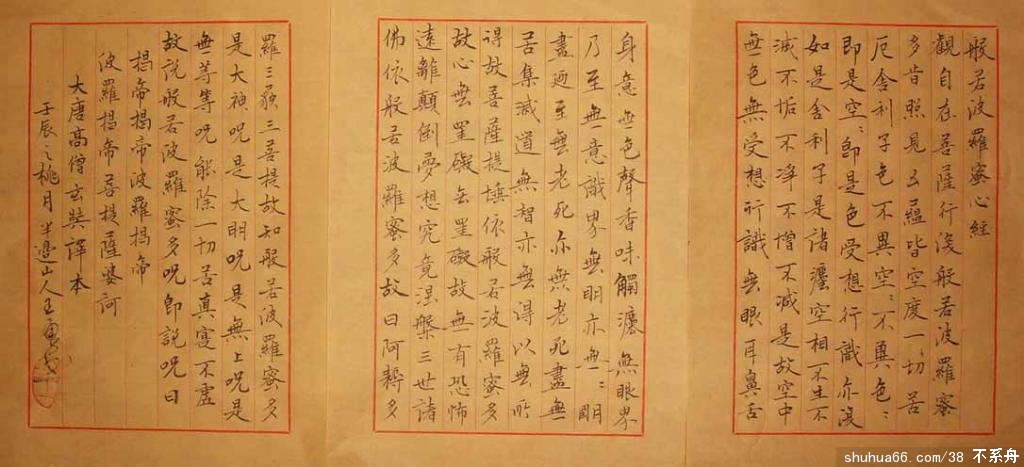 般若波羅蜜心経
觀自在菩薩行深般若波羅蜜
多時照見五蘊皆空度一切苦
厄舍利子色不異空〻不異色〻
即是空〻即是色受想行識亦復
如是舍利子是諸灋空相不生不
滅不垢不淨不增不減是故空中
無色無受想行識無眼耳鼻舌
身意無色聲香味觸灋無眼界
乃至無意識界無明亦無〻明
盡迺至無老死亦無老死盡無
苦集滅道無智亦無得以無所
得故菩薩提埵依般若波羅蜜多
故心無罣礙無罣礙故無有恐怖
遠離顛倒夢想究竟涅槃三世諸
佛依般若波羅蜜多故曰阿耨多
羅三藐三菩提故知般若波羅蜜多
是大神呪是大明呪是無上呪是
無等等呪能除一切苦真實不虛
故說般若波羅蜜多呪即說呪曰
揭帝揭帝波羅揭帝
波羅揭帝菩提薩婆訶
大唐高僧玄奘譯本
壬辰之桃月半邊山人王
shuhua66.com/38 不系舟